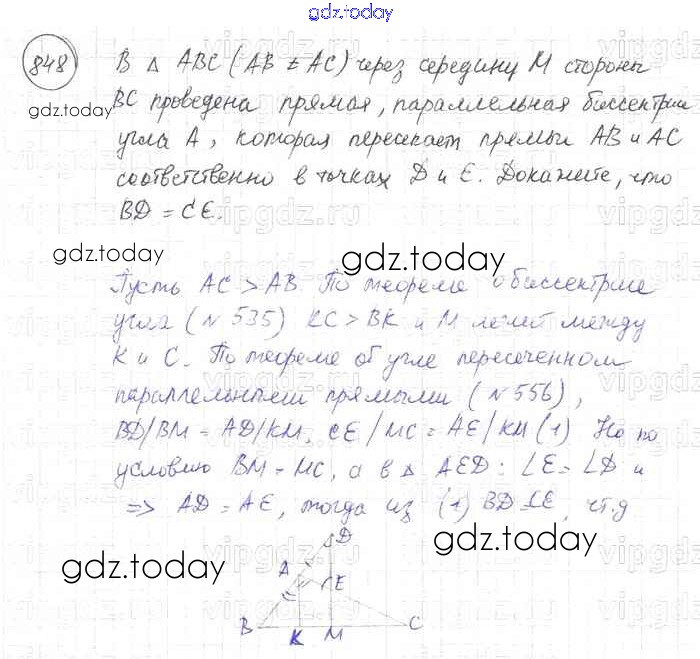 gdz.today
848 В △ ABC (AB ≠ AC) через середину M стороны
BC проведена прямая, параллельная биссектрисе
gdz.today
угла A, которая пересекает прямые AB и AC
соответственно в точках D и E. Докажите, что
BD = CE.
gdz.today
gdz.today
Пусть AC > AB. По теореме о биссектрисе
угла (N 535) KC > BK и M лежит между
K и C. По теореме об угле пересеченном
параллельными прямыми (N 556),
BD/BM = AD/KM, CE/MC = AE/KM (1) Но по
условию BM = MC, а в △ AED: ∠E = ∠D и
=> AD = AE, тогда из (1) BD = CE, ч.т.д
gdz.today
gdz.today
D
A
E
B
K
M
C